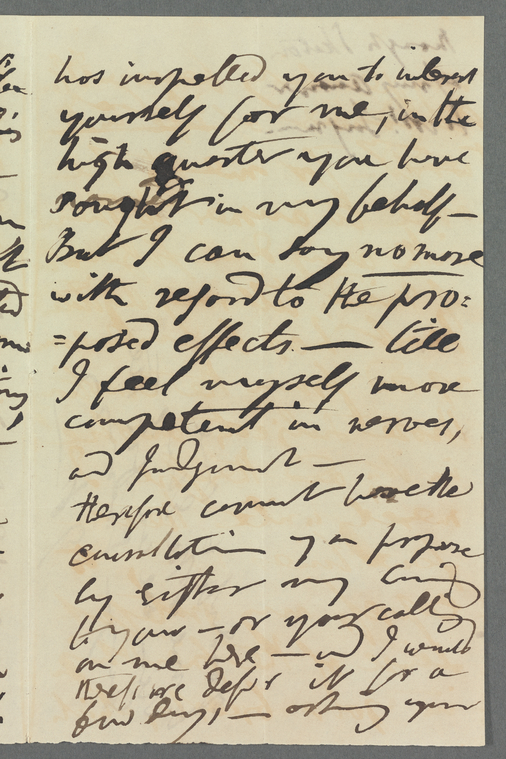 has impelled you to interest
yourself for me, in the
high quarter you have
sought in my behalf –
But I can say no more
with regard to the pro=
=posed effects. — till
I feel myself more
competent in nerves,
and Judgment —
therefore cannot have the
consultation you propose
by either my coming
to you – or your calling
on me here — and I would
therefore defer it for a
few days, — asking your